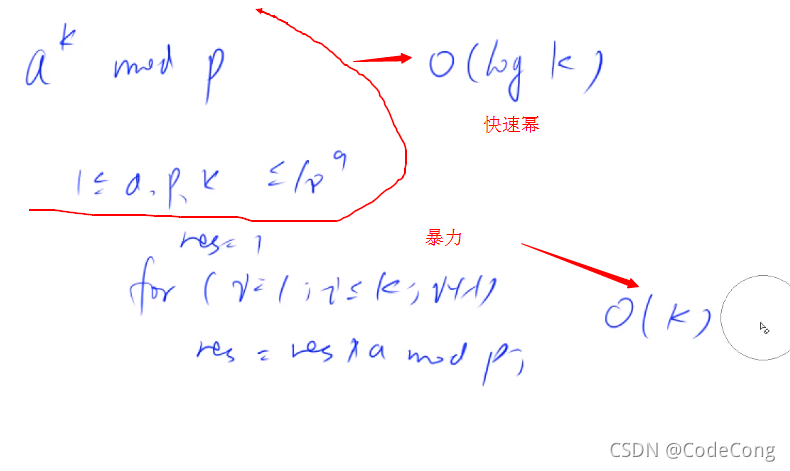 a^k mod p
O(log k)
快速幂
1 ≤ a, p, k ≤ 10^9
res = 1
暴力
for ( i = 1 ; i ≤ k ; i++ )
O(k)
res = res * a mod p ;
CSDN @CodeCong